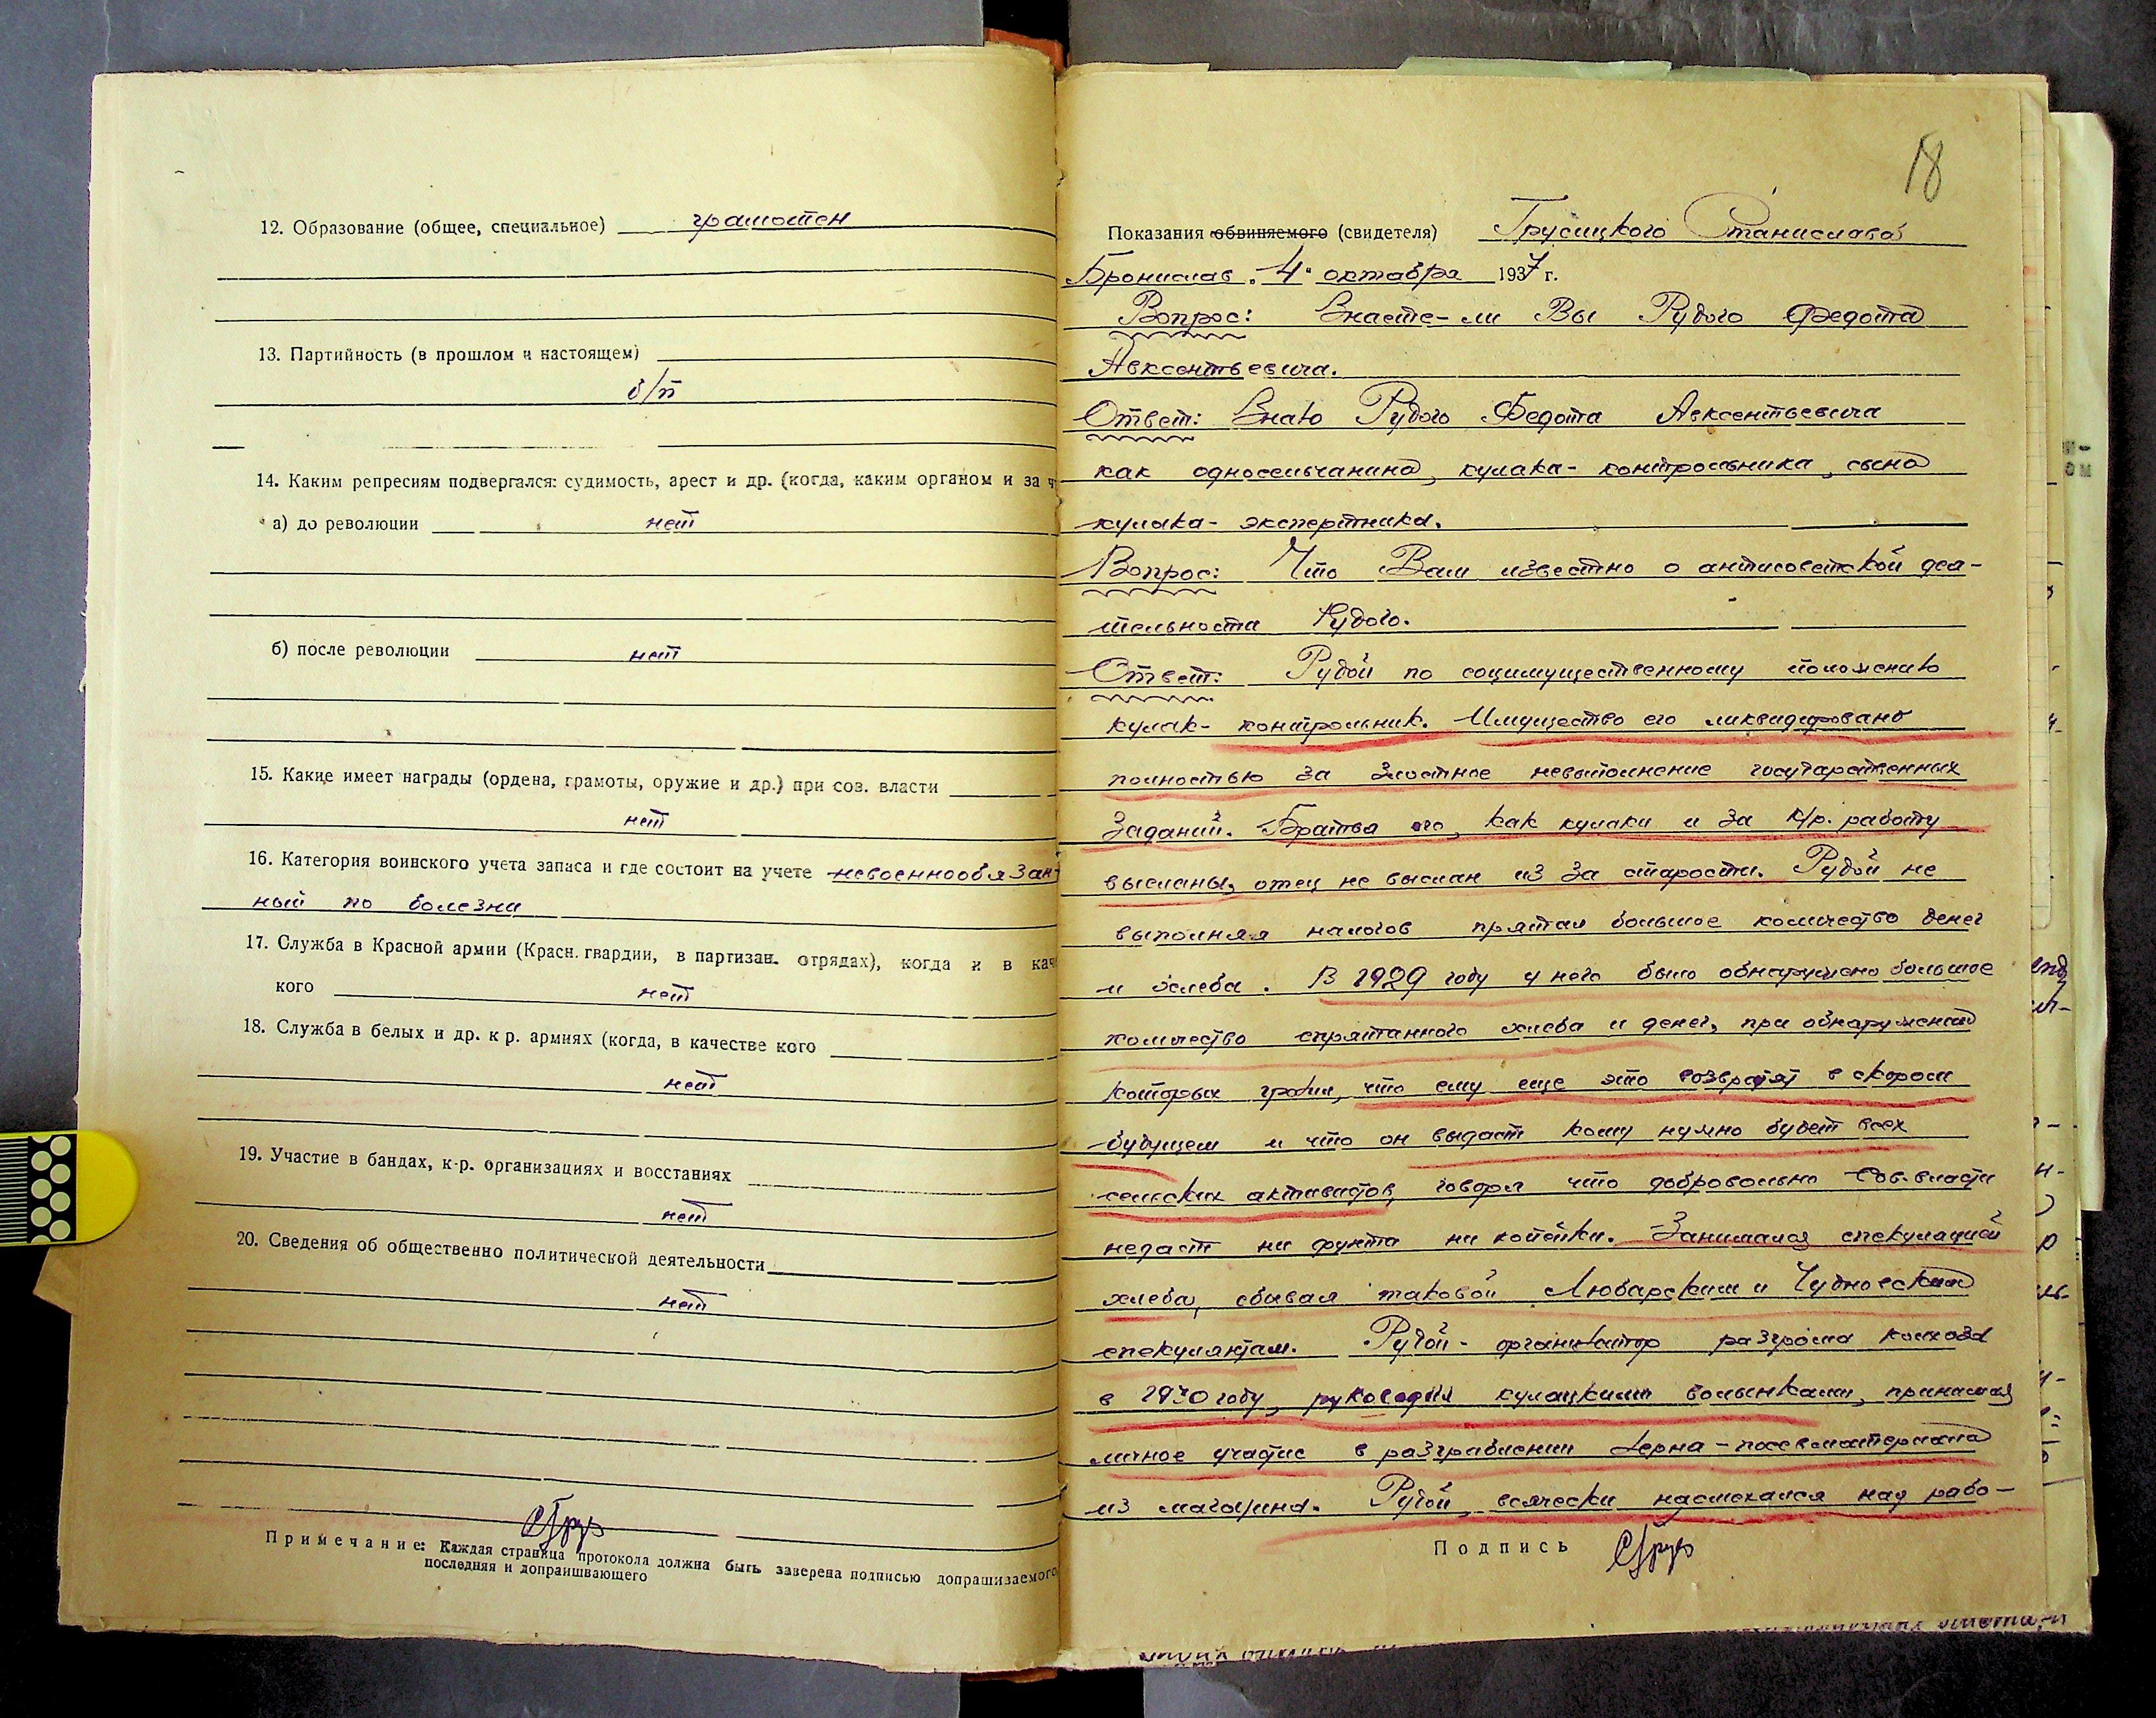 12. Образование (общее, специальное) грамотен
13. Партийность (в прошлом и настоящем)
б/п
14. Каким репресиям подвергался: судимость, арест и др. (когда, каким органом и за ч
а) до революции нет
б) после революции нет
15. Какие имеет награды (ордена, грамоты, оружие и др.) при сов. власти
нет
16. Категория воинского учета запаса и где состоит на учете невоеннообязан-
ный по болезни
17. Служба в Красной армии (Красн. гвардии, в партизан. отрядах), когда и в кач
кого нет
18. Служба в белых и др. к р. армиях (когда, в качестве кого
нет
19. Участие в бандах, к-р. организациях и восстаниях
нет
20. Сведения об общественно политической деятельности
нет
Примечание: Каждая страница протокола должна быть заверена подписью допрашиваемого
последняя и допрашивающего
18
Показания обвиняемого (свидетеля) Грусицкого Станислава
Бронислав. 4. октября 1937 г.
Вопрос: Знаете-ли Вы Рудого Федота
Авксентьевича.
Ответ: Знаю Рудого Федота Авксентьевича
как односельчанина, кулака-контрольника, сына
кулака-экспертника.
Вопрос: Что Вам известно о антисоветской дея-
тельности Рудого.
Ответ: Рудой по социмущественному положению
кулак-контрольник. Имущество его ликвидировано
полностью за злостное невыполнение государственных
заданий. Братья его, как кулаки и за к/р. работу
высланы, отец не выслан из за старости. Рудой не
выполняя налогов прятал большое количество денег
и хлеба. В 1929 году у него было обнаружено большое
количество спрятанного хлеба и денег, при обнаружении
которых грозил, что ему еще это возвратят в скором
будущем и что он выдаст кому нужно будет всех
сельских активистов, говоря что добровольно Сов.власти
недаст ни фунта ни копейки. Занимался спекуляцией
хлеба, сбывая таковой Любарским и Чудновским
спекулянтам. Рудой - организатор разгрома колхоза
в 1930 году, руководил кулацкими волынками, принимал
личное участие в разграблении зерна-посевматериала
из магазина. Рудой, всячески насмехался над рабо-
Подпись